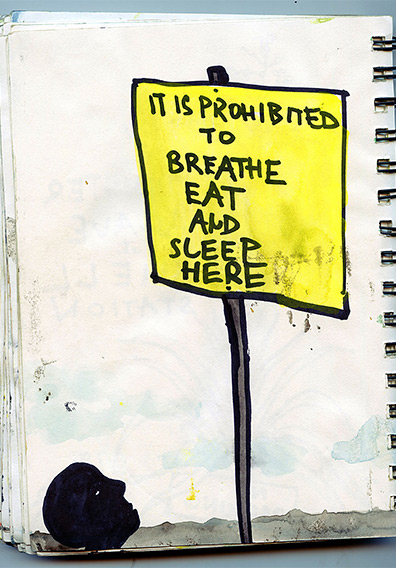 IT IS PROHIBITED
TO
BREATHE
EAT
AND
SLEEP
HERE